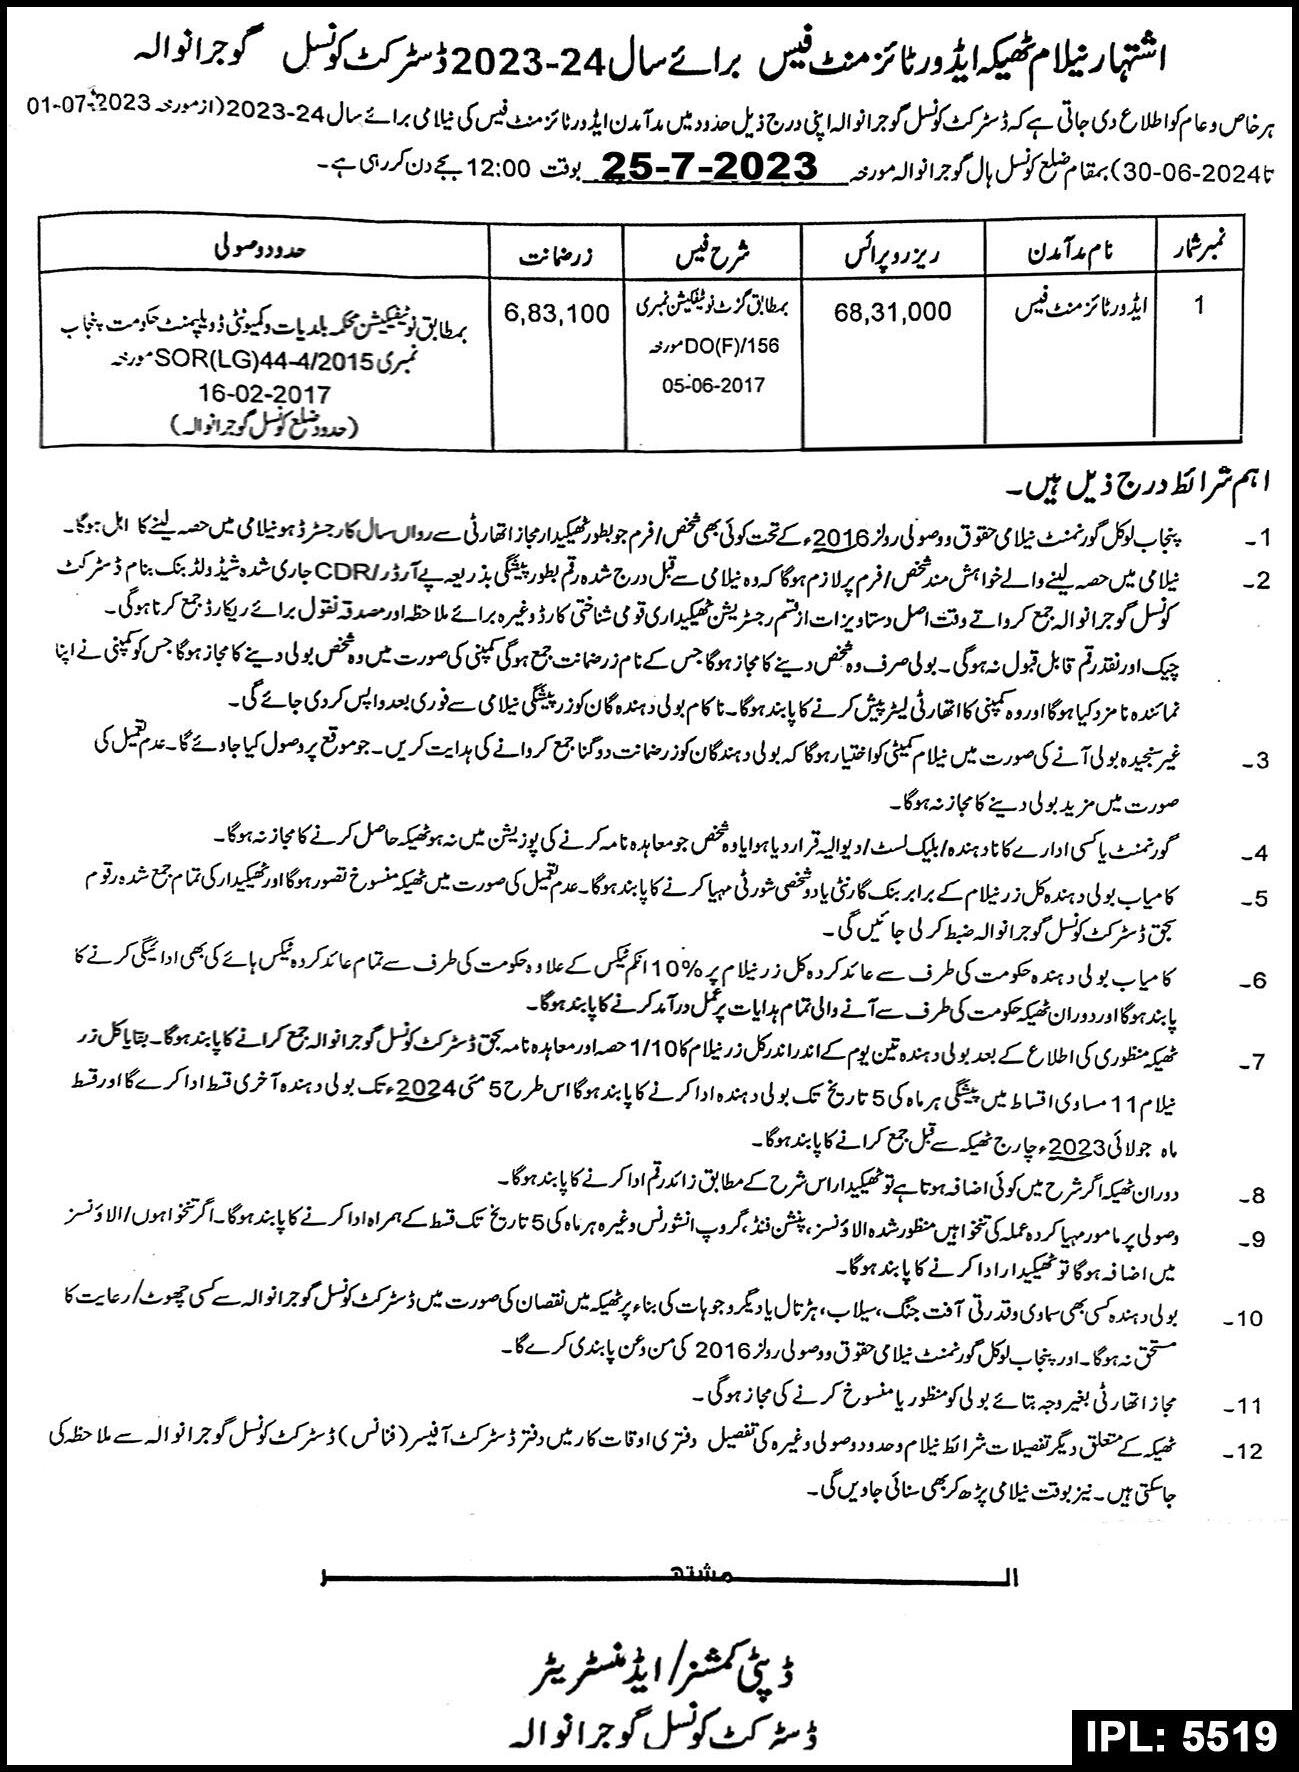 اشتہار نیلام ٹھیکہ ایڈورٹائزمنٹ فیس برائے سال 2023-24 ڈسٹرکٹ کونسل گوجرانوالہ
ہر خاص و عام کو اطلاع دی جاتی ہے کہ ڈسٹرکٹ کونسل گوجرانوالہ اپنی درج ذیل حدود میں مد آمدن ایڈورٹائزمنٹ فیس کی نیلامی برائے سال 2023-24 (از مورخہ 01-07-2023
تا 30-06-2024) بمقام ضلع کونسل ہال گوجرانوالہ مورخہ 25-7-2023 بوقت 12:00 بجے دن کر رہی ہے۔
نمبر شمار نام مد آمدن ریزرو پرائس شرح فیس زر ضمانت حدود وصولی
1 ایڈورٹائزمنٹ فیس 68,31,000 بمطابق گزٹ نوٹیفکیشن نمبری 6,83,100 بمطابق نوٹیفکیشن محکمہ بلدیات و کمیونٹی ڈویلپمنٹ حکومت پنجاب
DO(F)/156 مورخہ نمبری SOR(LG)44-4/2015 مورخہ
05-06-2017 16-02-2017
(حدود ضلع کونسل گوجرانوالہ)
اہم شرائط درج ذیل ہیں۔
1۔ پنجاب لوکل گورنمنٹ نیلامی حقوق و وصولی رولز 2016ء کے تحت کوئی بھی شخص/فرم جو بطور ٹھیکیدار مجاز اتھارٹی سے رواں سال کا رجسٹرڈ ہو نیلامی میں حصہ لینے کا اہل ہوگا۔
2۔ نیلامی میں حصہ لینے والے خواہش مند شخص/فرم پر لازم ہوگا کہ وہ نیلامی سے قبل درج شدہ رقم بطور پیشگی بذریعہ پے آرڈر/CDR جاری شدہ شیڈولڈ بنک بنام ڈسٹرکٹ
کونسل گوجرانوالہ جمع کرواتے وقت اصل دستاویزات از قسم رجسٹریشن ٹھیکیداری قومی شناختی کارڈ وغیرہ برائے ملاحظہ اور مصدقہ نقول برائے ریکارڈ جمع کرنا ہوگی۔
چیک اور نقد رقم قابل قبول نہ ہوگی۔ بولی صرف وہ شخص دینے کا مجاز ہوگا جس کے نام زر ضمانت جمع ہوگی کمپنی کی صورت میں وہ شخص بولی دینے کا مجاز ہوگا جس کو کمپنی نے اپنا
نمائندہ نامزد کیا ہوگا اور وہ کمپنی کا اتھارٹی لیٹر پیش کرنے کا پابند ہوگا۔ ناکام بولی دہندہ گان کو زر پیشگی نیلامی سے فوری بعد واپس کر دی جائے گی۔
3۔ غیر سنجیدہ بولی آنے کی صورت میں نیلام کمیٹی کو اختیار ہوگا کہ بولی دہندگان کو زر ضمانت دوگنا جمع کروانے کی ہدایت کریں۔ جو موقع پر وصول کیا جاوئے گا۔ عدم تعمیل کی
صورت میں مزید بولی دینے کا مجاز نہ ہوگا۔
4۔ گورنمنٹ یا کسی ادارے کا نا دہندہ/بلیک لسٹ/دیوالیہ قرار دیا ہوا یا وہ شخص جو معاہدہ نامہ کرنے کی پوزیشن میں نہ ہو ٹھیکہ حاصل کرنے کا مجاز نہ ہوگا۔
5۔ کامیاب بولی دہندہ کل زر نیلام کے برابر بنک گارنٹی یا دو شخصی شورٹی مہیا کرنے کا پابند ہوگا۔ عدم تعمیل کی صورت میں ٹھیکہ منسوخ تصور ہوگا اور ٹھیکیدار کی تمام جمع شدہ رقوم
بحق ڈسٹرکٹ کونسل گوجرانوالہ ضبط کر لی جائیں گی۔
6۔ کامیاب بولی دہندہ حکومت کی طرف سے عائد کردہ کل زر نیلام پر 10% انکم ٹیکس کے علاوہ حکومت کی طرف سے تمام عائد کردہ ٹیکس ہائے کی بھی ادائیگی کرنے کا
پابند ہوگا اور دوران ٹھیکہ حکومت کی طرف سے آنے والی تمام ہدایات پر عمل درآمد کرنے کا پابند ہوگا۔
7۔ ٹھیکہ منظوری کی اطلاع کے بعد بولی دہندہ تین یوم کے اندر اندر کل زر نیلام کا 1/10 حصہ اور معاہدہ نامہ بحق ڈسٹرکٹ کونسل گوجرانوالہ جمع کرانے کا پابند ہوگا۔ بقایا کل زر
نیلام 11 مساوی اقساط میں پیشگی ہر ماہ کی 5 تاریخ تک بولی دہندہ ادا کرنے کا پابند ہوگا اس طرح 5 مئی 2024ء تک بولی دہندہ آخری قسط ادا کرے گا اور قسط
ماہ جولائی 2023ء چارج ٹھیکہ سے قبل جمع کرانے کا پابند ہوگا۔
8۔ دوران ٹھیکہ اگر شرح میں کوئی اضافہ ہوتا ہے تو ٹھیکیدار اس شرح کے مطابق زائد رقم ادا کرنے کا پابند ہوگا۔
9۔ وصولی پر مامور مہیا کردہ عملہ کی تنخواہیں منظور شدہ الاؤنسز، پنشن فنڈ، گروپ انشورنس وغیرہ ہر ماہ کی 5 تاریخ تک قسط کے ہمراہ ادا کرنے کا پابند ہوگا۔ اگر تنخواہوں/الاؤنسز
میں اضافہ ہوگا تو ٹھیکیدار ادا کرنے کا پابند ہوگا۔
10۔ بولی دہندہ کسی بھی سماوی و قدرتی آفت جنگ، سیلاب، ہڑتال یا دیگر وجوہات کی بناء پر ٹھیکہ میں نقصان کی صورت میں ڈسٹرکٹ کونسل گوجرانوالہ سے کسی چھوٹ/رعایت کا
مستحق نہ ہوگا۔ اور پنجاب لوکل گورنمنٹ نیلامی حقوق و وصولی رولز 2016 کی من و عن پابندی کرے گا۔
11۔ مجاز اتھارٹی بغیر وجہ بتائے بولی کو منظور یا منسوخ کرنے کی مجاز ہوگی۔
12۔ ٹھیکہ کے متعلق دیگر تفصیلات شرائط نیلام و حدود وصولی وغیرہ کی تفصیل دفتری اوقات کار میں دفتر ڈسٹرکٹ آفیسر (فنانس) ڈسٹرکٹ کونسل گوجرانوالہ سے ملاحظہ کی
جا سکتی ہیں۔ نیز بوقت نیلامی پڑھ کر بھی سنائی جاویں گی۔
المشتھر
ڈپٹی کمشنر/ایڈمنسٹریٹر
ڈسٹرکٹ کونسل گوجرانوالہ
IPL: 5519